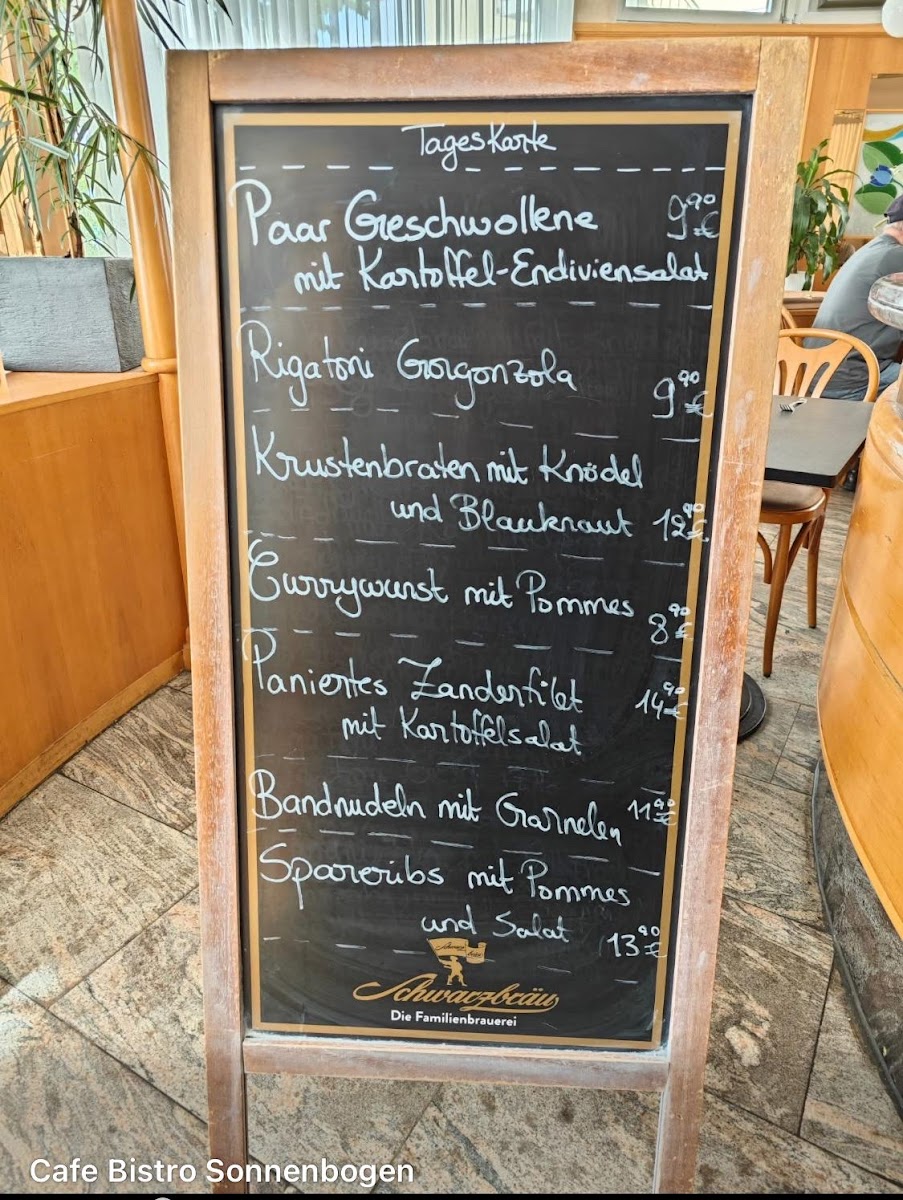 Tageskarte
Paar Geschwollene 9,90 €
mit Kartoffel-Endiviensalat
Rigatoni Gorgonzola 9,90 €
Krustenbraten mit Knödel
und Blaukraut 12,90 €
Currywurst mit Pommes 8,90 €
Paniertes Zanderfilet 14,90 €
mit Kartoffelsalat
Bandnudeln mit Garnelen 11,90 €
Spareribs mit Pommes
und Salat 13,90 €
Schwarzbräu
Die Familienbrauerei
Cafe Bistro Sonnenbogen